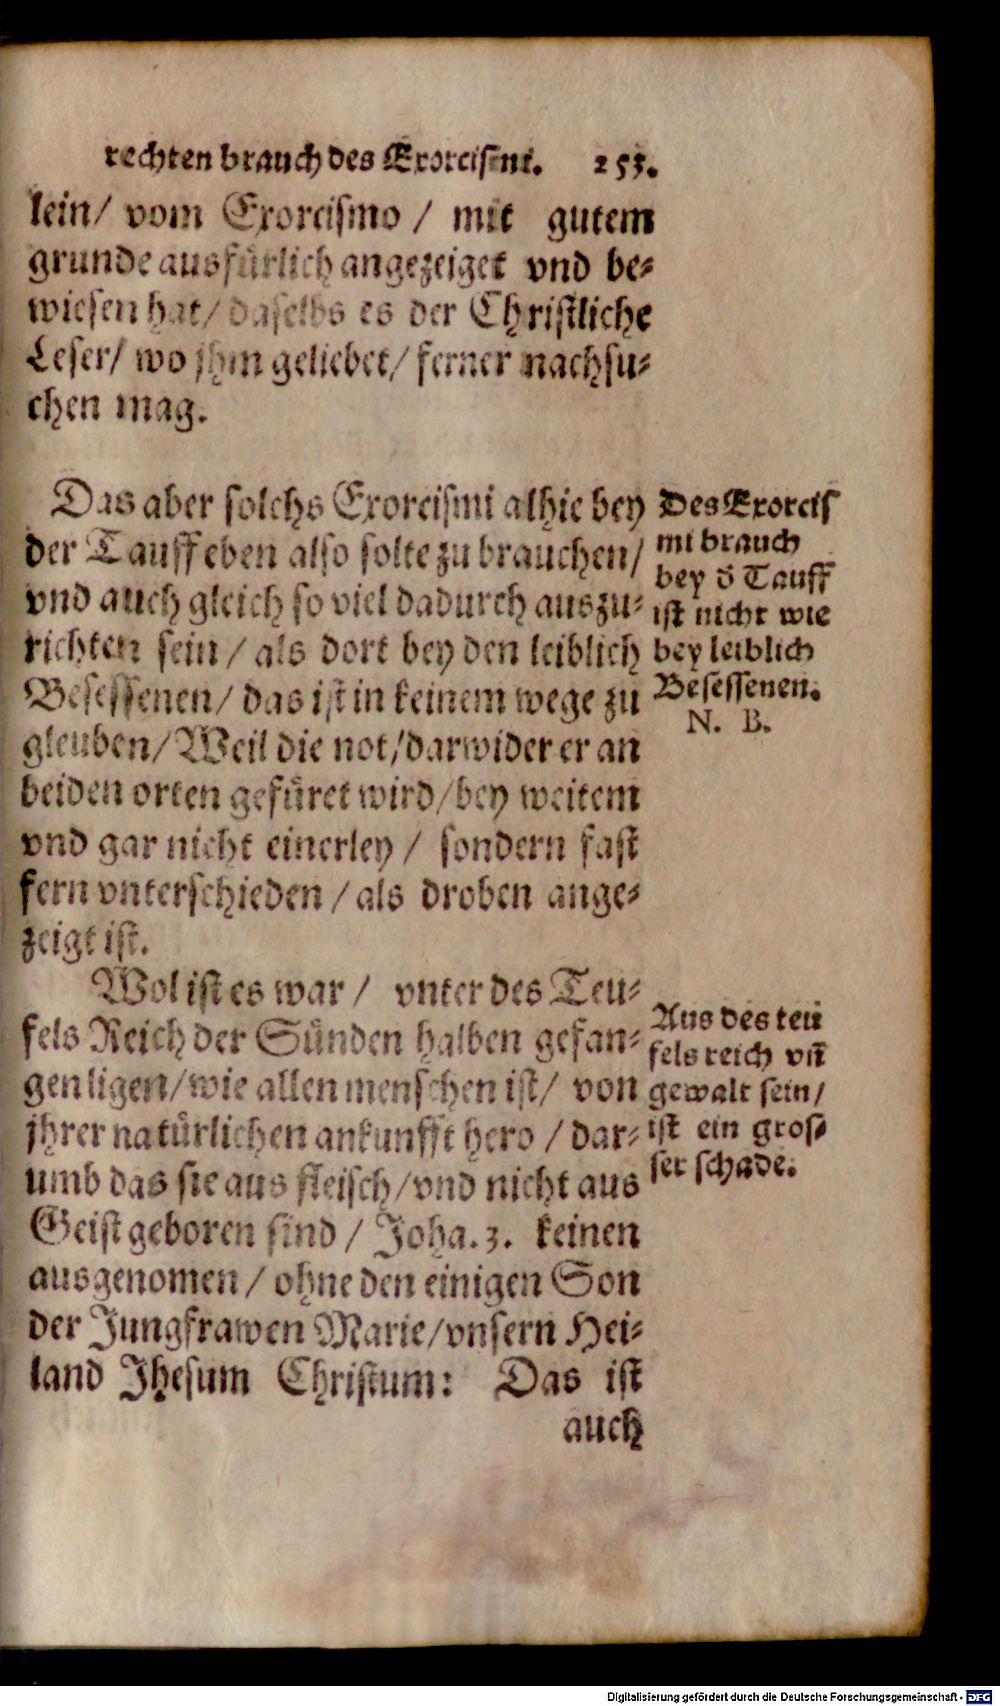 rechten brauch des Exorcismi. 253.
lein/ vom Exorcismo / mit gutem
grunde ausfürlich angezeiget vnd be-
wiesen hat/ daselbs es der Christliche
Leser/ wo jhm geliebet/ ferner nachsu-
chen mag.
Das aber solchs Exorcismi alhie bey
der Tauff eben also solte zu brauchen/
vnd auch gleich so viel dadurch auszu-
richten sein / als dort bey den leiblich
Besessenen/ das ist in keinem wege zu
gleuben/ Weil die not/ darwider er an
beiden orten gefüret wird/ bey weitem
vnd gar nicht einerley / sondern fast
fern vnterschieden / als droben ange-
zeigt ist.
Des Exorcis
mi brauch
bey d̄ Tauff
ist nicht wie
bey leiblich
Besessenen.
N. B.
Wol ist es war / vnter des Teu-
fels Reich der Sünden halben gefan-
gen ligen/ wie allen menschen ist/ von
jhrer natürlichen ankunfft hero / dar-
umb das sie aus fleisch/ vnd nicht aus
Geist geboren sind / Joha. 3. keinen
ausgenomen / ohne den einigen Son
der Jungfrawen Marie/ vnsern Hei-
land Jhesum Christum: Das ist
auch
Aus des teu
fels reich vn̄
gewalt sein/
ist ein gros-
ser schade.
Digitalisierung gefördert durch die Deutsche Forschungsgemeinschaft - DFG